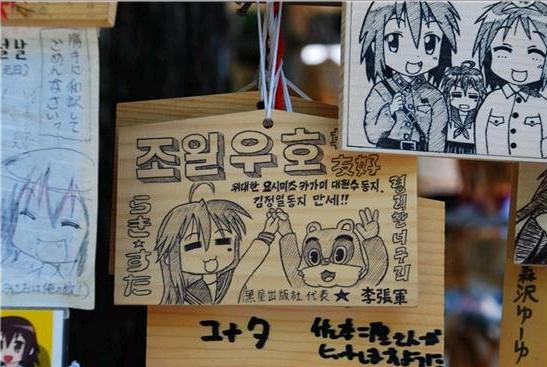 조일우호
友好
위대한 요시미즈 카가미 대원수 동지,
김정일동지 만세!!
らき☆すた
평리한너구리
黒星出版社 代表 ★ 李張軍
勝手に和訳して
ごめんなさいっ
ユナタ
佐本二厘さんが
ヒットしますように
森沢ゆーゆ